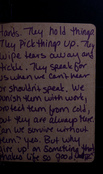 Hands. They hold things
They pick things up. They
wipe tears away and
tickle. They speak for
us when we can't hear
or shouldn't speak. We
punish them with work,
protect them from cold,
but they are always there.
Can we survive without
them? Yes. But why
give up on Something that
makes life so good